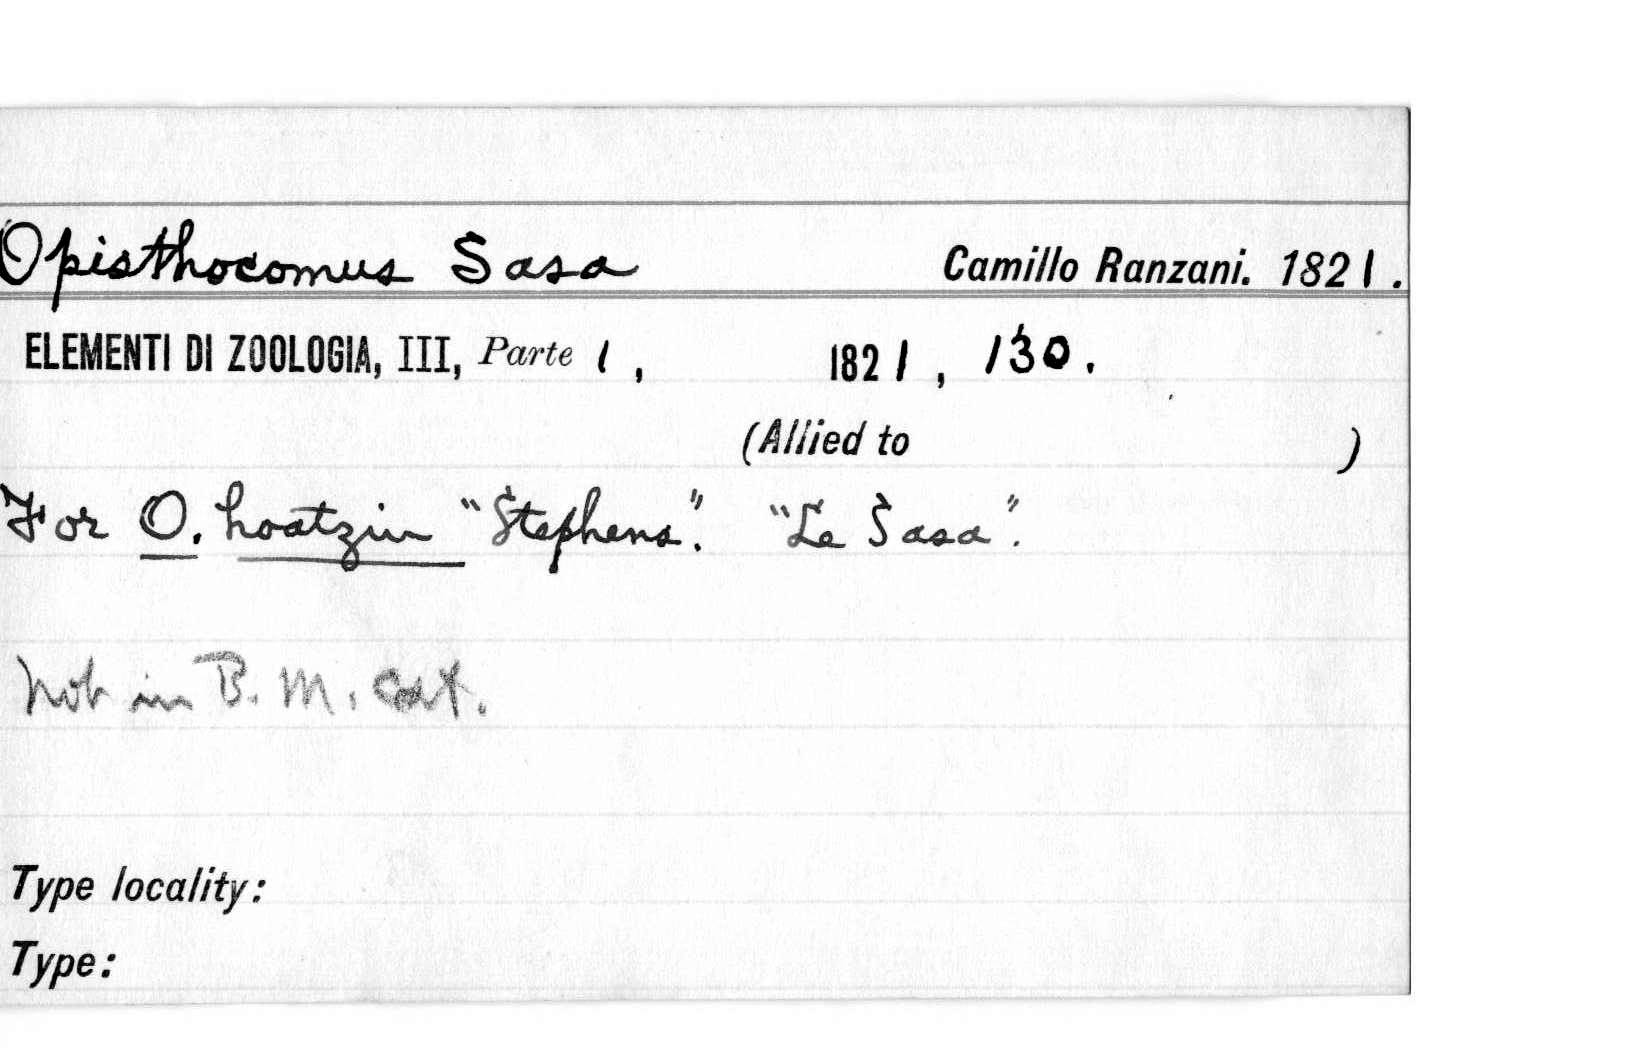 Opisthocomus Sasa Camillo Ranzani. 1821.
ELEMENTI DI ZOOLOGIA, III, Parte 1, 1821, 130.
(Allied to )
For O. hoatzin "Stephens". "Le Sasa".
Not in B. M. Cat.
Type locality:
Type: